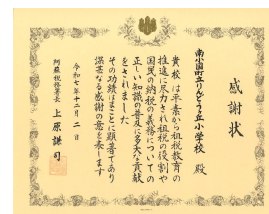 感謝状
南小国町立りんどう丘小学校 殿
貴校は平素から租税教育の
推進に尽力され租税の役割や
国民の納税の義務についての
正しい知識の普及に多大な貢献
をされました
その功績はまことに顕著であり
深甚なる感謝の意を表します
令和七年十二月二日
阿蘇税務署長 上原謙司